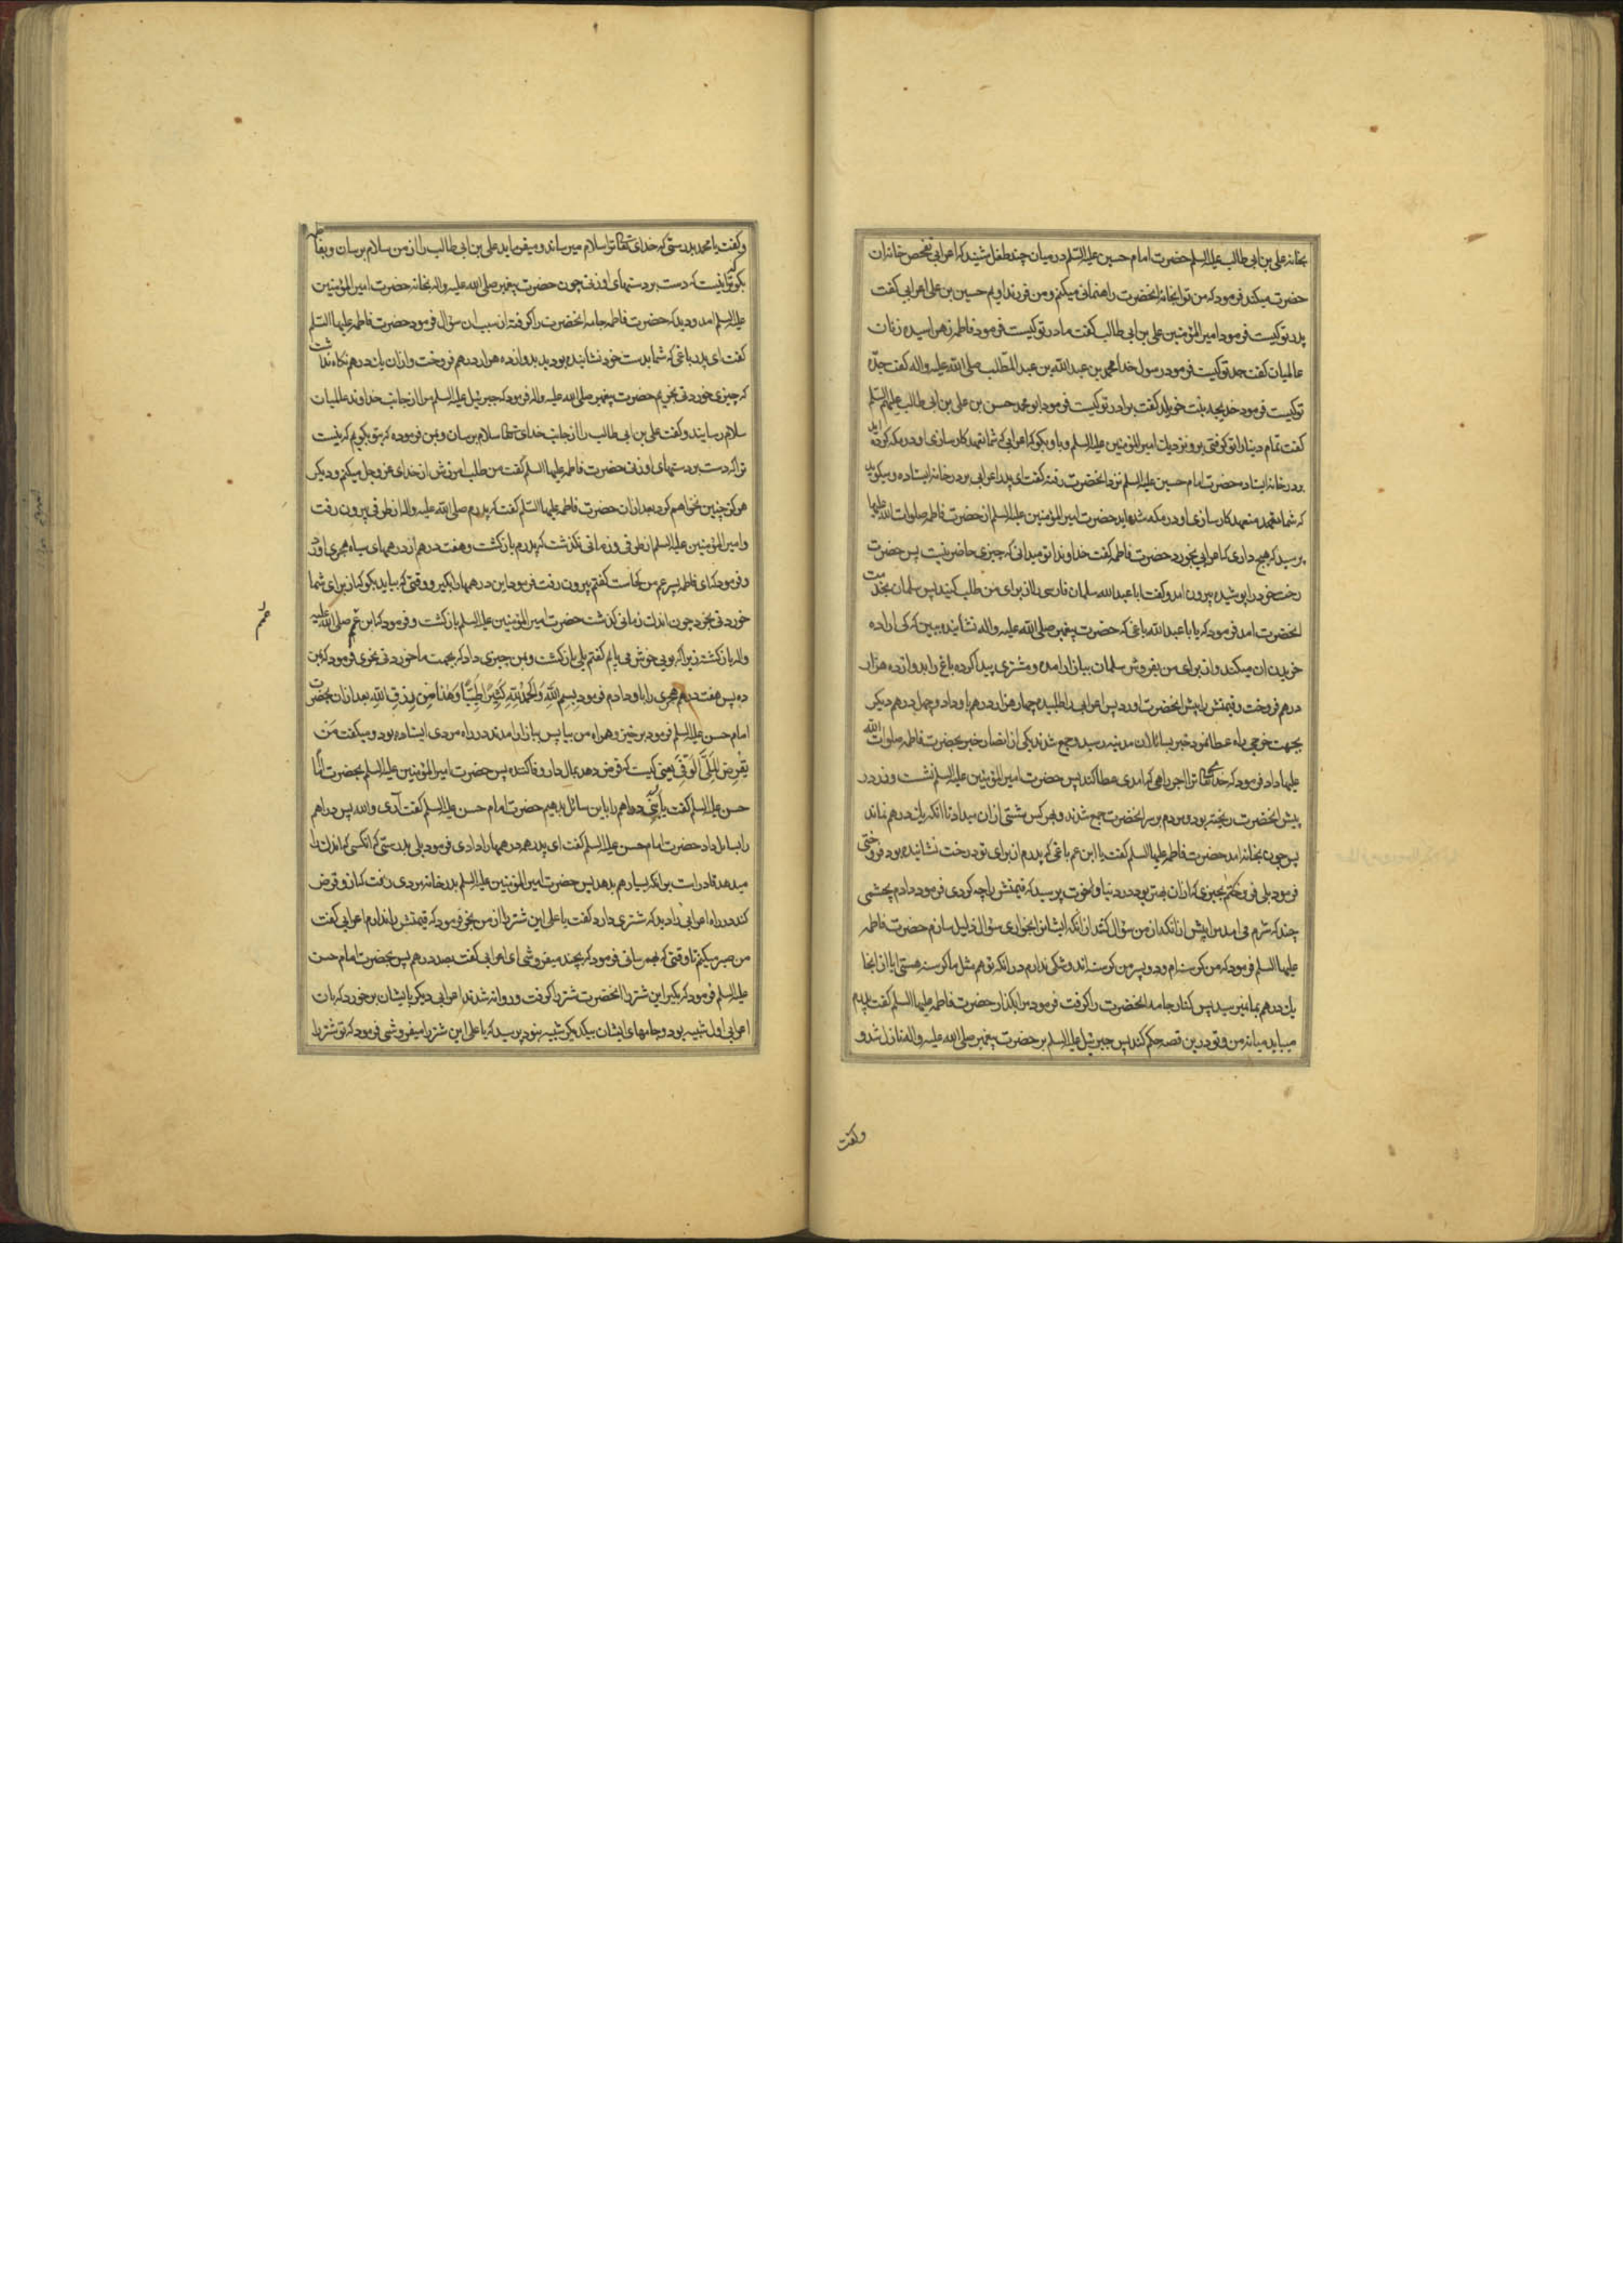 بخانه علی بن ابی طالب علیه السلم حضرت امام حسین علیه السلم در میان چند طفل شنید که اعرابی تفحص خانه ان
حضرت میکند فرمود که من ترا بخانه انحضرت راهنمائی میکنم و من فرزند اویم حسین بن علی اعرابی گفت
پدر تو کیست فرمود امیر المؤمنین علی بن ابی طالب گفت مادر تو کیست فرمود فاطمه زهرا سیده زنان
عالمیان گفت جد تو کیست فرمود رسول خدا محمد بن عبد الله بن عبد المطلب صلی الله علیه واله گفت جده
تو کیست فرمود خدیجه بنت خویلد گفت برادر تو کیست فرمود ابو محمد حسن بن علی بن ابی طالب علیهم السلم
گفت تمام دنیا را تو گرفتی برو نزدیک امیر المؤمنین علیه السلم و باو بگو که اعرابی که شما تعهد کار سازی او در مکه کرده اید
بر در خانه ایستاده حضرت امام حسین علیه السلم نزد انحضرت رفته گفت ای پدر اعرابی بر در خانه ایستاده و میگوید
که شما تعهد متعهد کار سازی او در مکه شده اید حضرت امیر المؤمنین علیه السلم از حضرت فاطمه صلوات الله علیها
پرسید که هیچ داری که اعرابی بخورد حضرت فاطمه گفت خداوندا تو میدانی که چیزی حاضر نیست پس حضرت
رخت خود را پوشیده بیرون امد و گفت ابا عبد الله سلمان فارسی را از برای من طلب کنید پس سلمان بخدمت
انحضرت امد فرمود که یا با عبد الله باغی که حضرت پیغمبر صلی الله علیه واله نشانیده ببین که کی اراده
خریدن ان میکند و از برای من بفروش سلمان ببازار امده و مشتری پیدا کرده باغ را بدوازده هزار
درهم فروخت و قیمتش را پیش انحضرت اورد پس اعرابی را طلبیده چهار هزار درهم باو داد و چهل درهم دیگر
بجهت خرجی راه عطا نمود خبر بسائلان مدینه رسید و جمع شدند یکی از انصار خبر بحضرت فاطمه صلوات الله
علیها داد فرمود که خدای تعالی ترا اجر راهی که امدی عطا کند پس حضرت امیر المؤمنین علیه السلم نشست و زر در
پیش انحضرت ریخته بود و مردم بر سر انحضرت جمع شدند و بهر کس مشتی از ان میداد تا انکه یک درهم نماند
پس چون بخانه امد حضرت فاطمه علیها السلم گفت یا ابن عم باغی که پدرم از برای تو درخت نشانیده بود فروختی
فرمود بلی فروختم بچیزی که از ان بهتر بود در دنیا و اخرت پرسید که قیمتش را چه کردی فرمود دادم بچشمی
چند که شرم می امد مرا پیش از انکه از من سؤال کنند از انکه ایشانرا بخواری سؤال ذلیل سازم حضرت فاطمه
علیها السلم فرمود که من گرسنه ام و دو پسر من گرسنه اند و شکی ندارم در انکه تو هم مثل ما گرسنه هستی ایا از انجا
یک درهم بما نمیرسید پس کنار جامه انحضرت را گرفت فرمود مرا بگذار حضرت فاطمه علیها السلم گفت پدرم
میباید میانه من و تو در ین قصه حکم کند پس جبرئیل علیه السلم بر حضرت پیغمبر صلی الله علیه واله نازل شد و
وگفت
وگفت یا محمد بدرستی که خدای تعالی ترا سلام میرساند و میفرماید علی بن ابی طالب را از من سلام برسان و بفاطمه
بگو که ترا نیست که دست بر دستهای او زنی چون حضرت پیغمبر صلی الله علیه واله بخانه حضرت امیر المؤمنین
علیه السلم امد و دید که حضرت فاطمه جامه انحضرت را گرفته از سبب ان سؤال فرمود حضرت فاطمه علیها السلم
گفت ای پدر باغی که شما بدست خود نشانیده بودید بدوازده هزار درهم فروخت و از ان یک درهم نگاه نداشت
که چیزی خوردنی بخریم حضرت پیغمبر صلی الله علیه واله فرمود که جبرئیل علیه السلم مرا از جانب خداوند عالمیان
سلام رسانید و گفت علی بن ابی طالب را از جانب خدای تعالی سلام برسان و بمن فرموده که بتو بگویم که نیست
ترا که دست بر دستهای او زنی حضرت فاطمه علیها السلم گفت من طلب امرزش از خدای عز و جل میکنم و دیگر
هرگز چنین نخواهم کرد بعد از ان حضرت فاطمه علیها السلم گفت که پدرم صلی الله علیه واله از طرفی بیرون رفت
و امیر المؤمنین علیه السلم از طرفی و زمانی نگذشت که پدرم باز گشت و هفت درهم از درهمهای سیاه هجری اورد
و فرمود که ای فاطمه پسر عم من کجاست گفتم بیرون رفت فرمود این درهمها را بگیر و وقتی که بیاید بگو که از برای شما
خوردنی بخرد چون اندک زمانی گذشت حضرت امیر المؤمنین علیه السلم باز گشت و فرمود که ابن عمم صلی الله علیه
واله باز گشته زیرا که بویی خوش می یابم گفتم بلی باز گشت و بمن چیزی داد که بجهت ما خوردنی بخری فرمود که بمن
ده پس هفت درهم هجری را باو دادم فرمود بسم الله والحمد لله كثيرا طيبا وهذا من رزق الله بعد از ان بحضرت
امام حسن علیه السلم فرمود برخیز و همراه من بیا پس ببازار امدند در راه مردی ایستاده بود و میگفت من
يقرض الملي الوفي یعنی کیست که قرض دهد بمال دار وفا کننده پس حضرت امیر المؤمنین علیه السلم بحضرت امام
حسن علیه السلم گفت یا بنی دراهم را باین سائل بدهیم حضرت امام حسن علیه السلم گفت آری والله پس دراهم
را بسایل داد حضرت امام حسن علیه السلم گفت ای پدر همه درهمها را دادی فرمود بلی بدرستی که انکسی که اندک را
میدهد قادر است بر انکه بسیار هم بدهد پس حضرت امیر المؤمنین علیه السلم بدر خانه مردی رفت که از و قرض
کند در راه اعرابی را دید که شتری دارد گفت یا علی این شتر را از من بخر فرمود که قیمتش را ندارم اعرابی گفت
من صبر میکنم تا وقتی که بهم رسانی فرمود که بچند میفروشی ای اعرابی گفت بصد درهم پس بحضرت امام حسن
علیه السلم فرمود که بگیر این شتر را انحضرت شتر را گرفت و روانه شدند اعرابی دیگر بایشان بر خورد که بان
اعرابی اول شبیه بود و جامهای ایشان بیکدیگر شبیه نبود پرسید که یا علی این شتر را میفروشی فرمود که تو شتر را